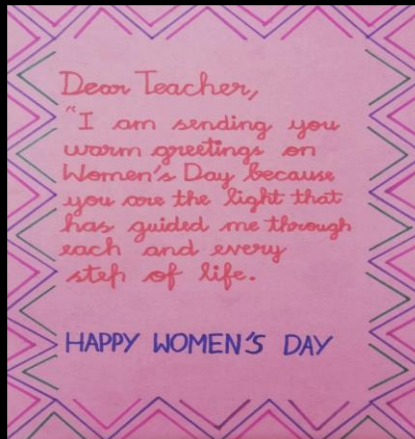 Dear Teacher,
"I am sending you
warm greetings on
Women's Day because
you are the light that
has guided me through
each and every
step of life.
HAPPY WOMEN'S DAY